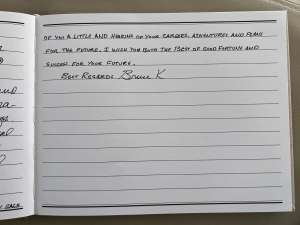 OF YOU A LITTLE AND HEARING OF YOUR CAREERS, ADVENTURES AND PLANS
FOR THE FUTURE. I WISH YOU BOTH THE BEST OF GOOD FORTUNE AND
SUCCESS FOR YOUR FUTURE.
BEST REGARDS Bruce K